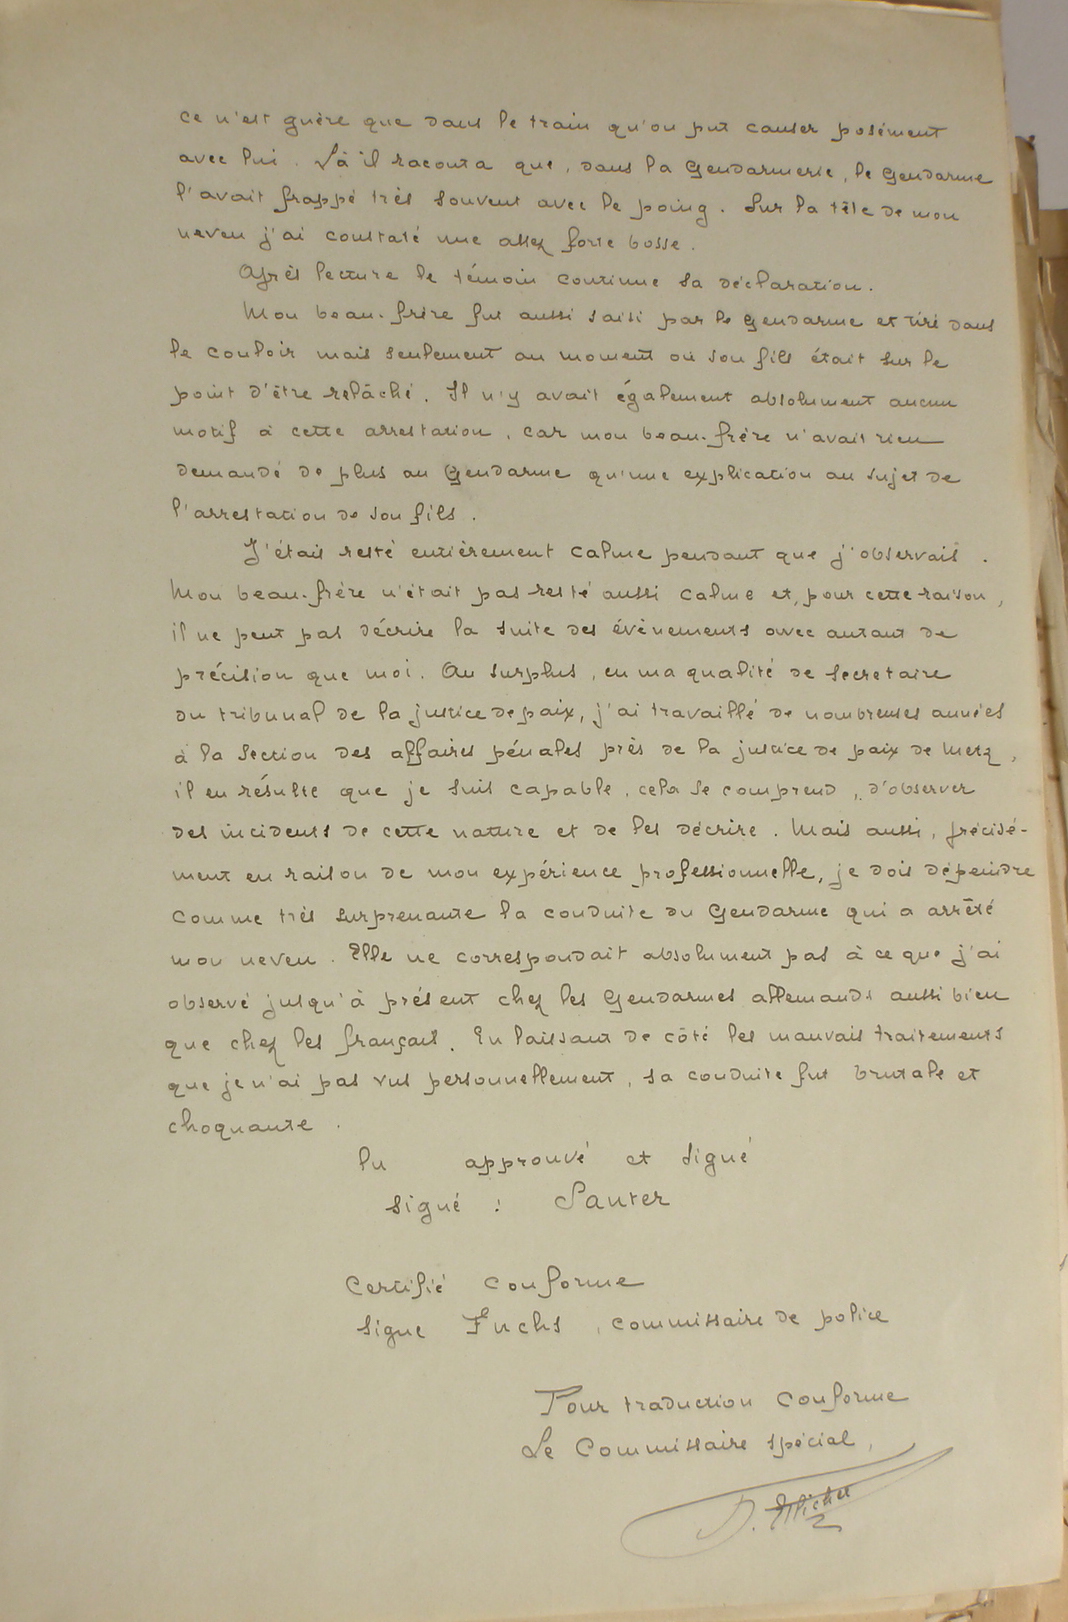 ce n'est guère que dans le train qu'on put causer posément
avec lui. Là il raconta que, dans la Gendarmerie, le Gendarme
l'avait frappé très souvent avec le poing. Sur la tête de mon
neveu j'ai constaté une assez forte bosse.
Après lecture le témoin continue sa déclaration.
Mon beau-frère fut aussi saisi par le Gendarme et tiré dans
le couloir mais seulement au moment où son fils était sur le
point d'être relâché. Il n'y avait également absolument aucun
motif à cette arrestation, car mon beau-frère n'avait rien
demandé de plus au Gendarme qu'une explication au sujet de
l'arrestation de son fils.
J'étais resté entièrement calme pendant que j'observais.
Mon beau-frère n'était pas resté aussi calme et, pour cette raison,
il ne peut pas décrire la suite des évènements avec autant de
précision que moi. Au surplus, en ma qualité de secretaire
du tribunal de la justice de paix, j'ai travaillé de nombreuses années
à la Section des affaires pénales près de la justice de paix de Metz,
il en résulte que je suis capable, cela se comprend, d'observer
des incidents de cette nature et de les décrire. Mais aussi, précisé-
ment en raison de mon expérience professionnelle, je dois dépeindre
comme très surprenante la conduite du Gendarme qui a arrêté
mon neveu. Elle ne correspondait absolument pas à ce que j'ai
observé jusqu'à présent chez les Gendarmes allemands aussi bien
que chez les français. En laissant de côté les mauvais traitements
que je n'ai pas vus personnellement, sa conduite fut brutale et
choquante.
lu approuvé et signé
signé : Sauter
Certifié conforme
signe Fuchs, commissaire de police
Pour traduction conforme
Le Commissaire spécial,